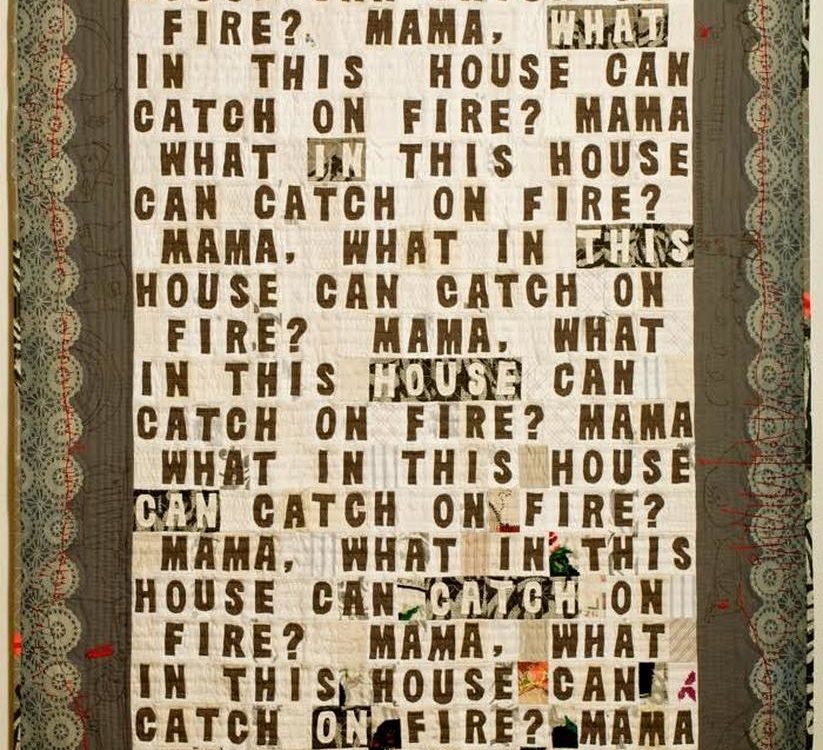 FIRE? MAMA, WHAT
IN THIS HOUSE CAN
CATCH ON FIRE? MAMA
WHAT IN THIS HOUSE
CAN CATCH ON FIRE?
MAMA, WHAT IN THIS
HOUSE CAN CATCH ON
FIRE? MAMA, WHAT
IN THIS HOUSE CAN
CATCH ON FIRE? MAMA
WHAT IN THIS HOUSE
CAN CATCH ON FIRE?
MAMA, WHAT IN THIS
HOUSE CAN CATCH ON
FIRE? MAMA, WHAT
IN THIS HOUSE CAN
CATCH ON FIRE? MAMA